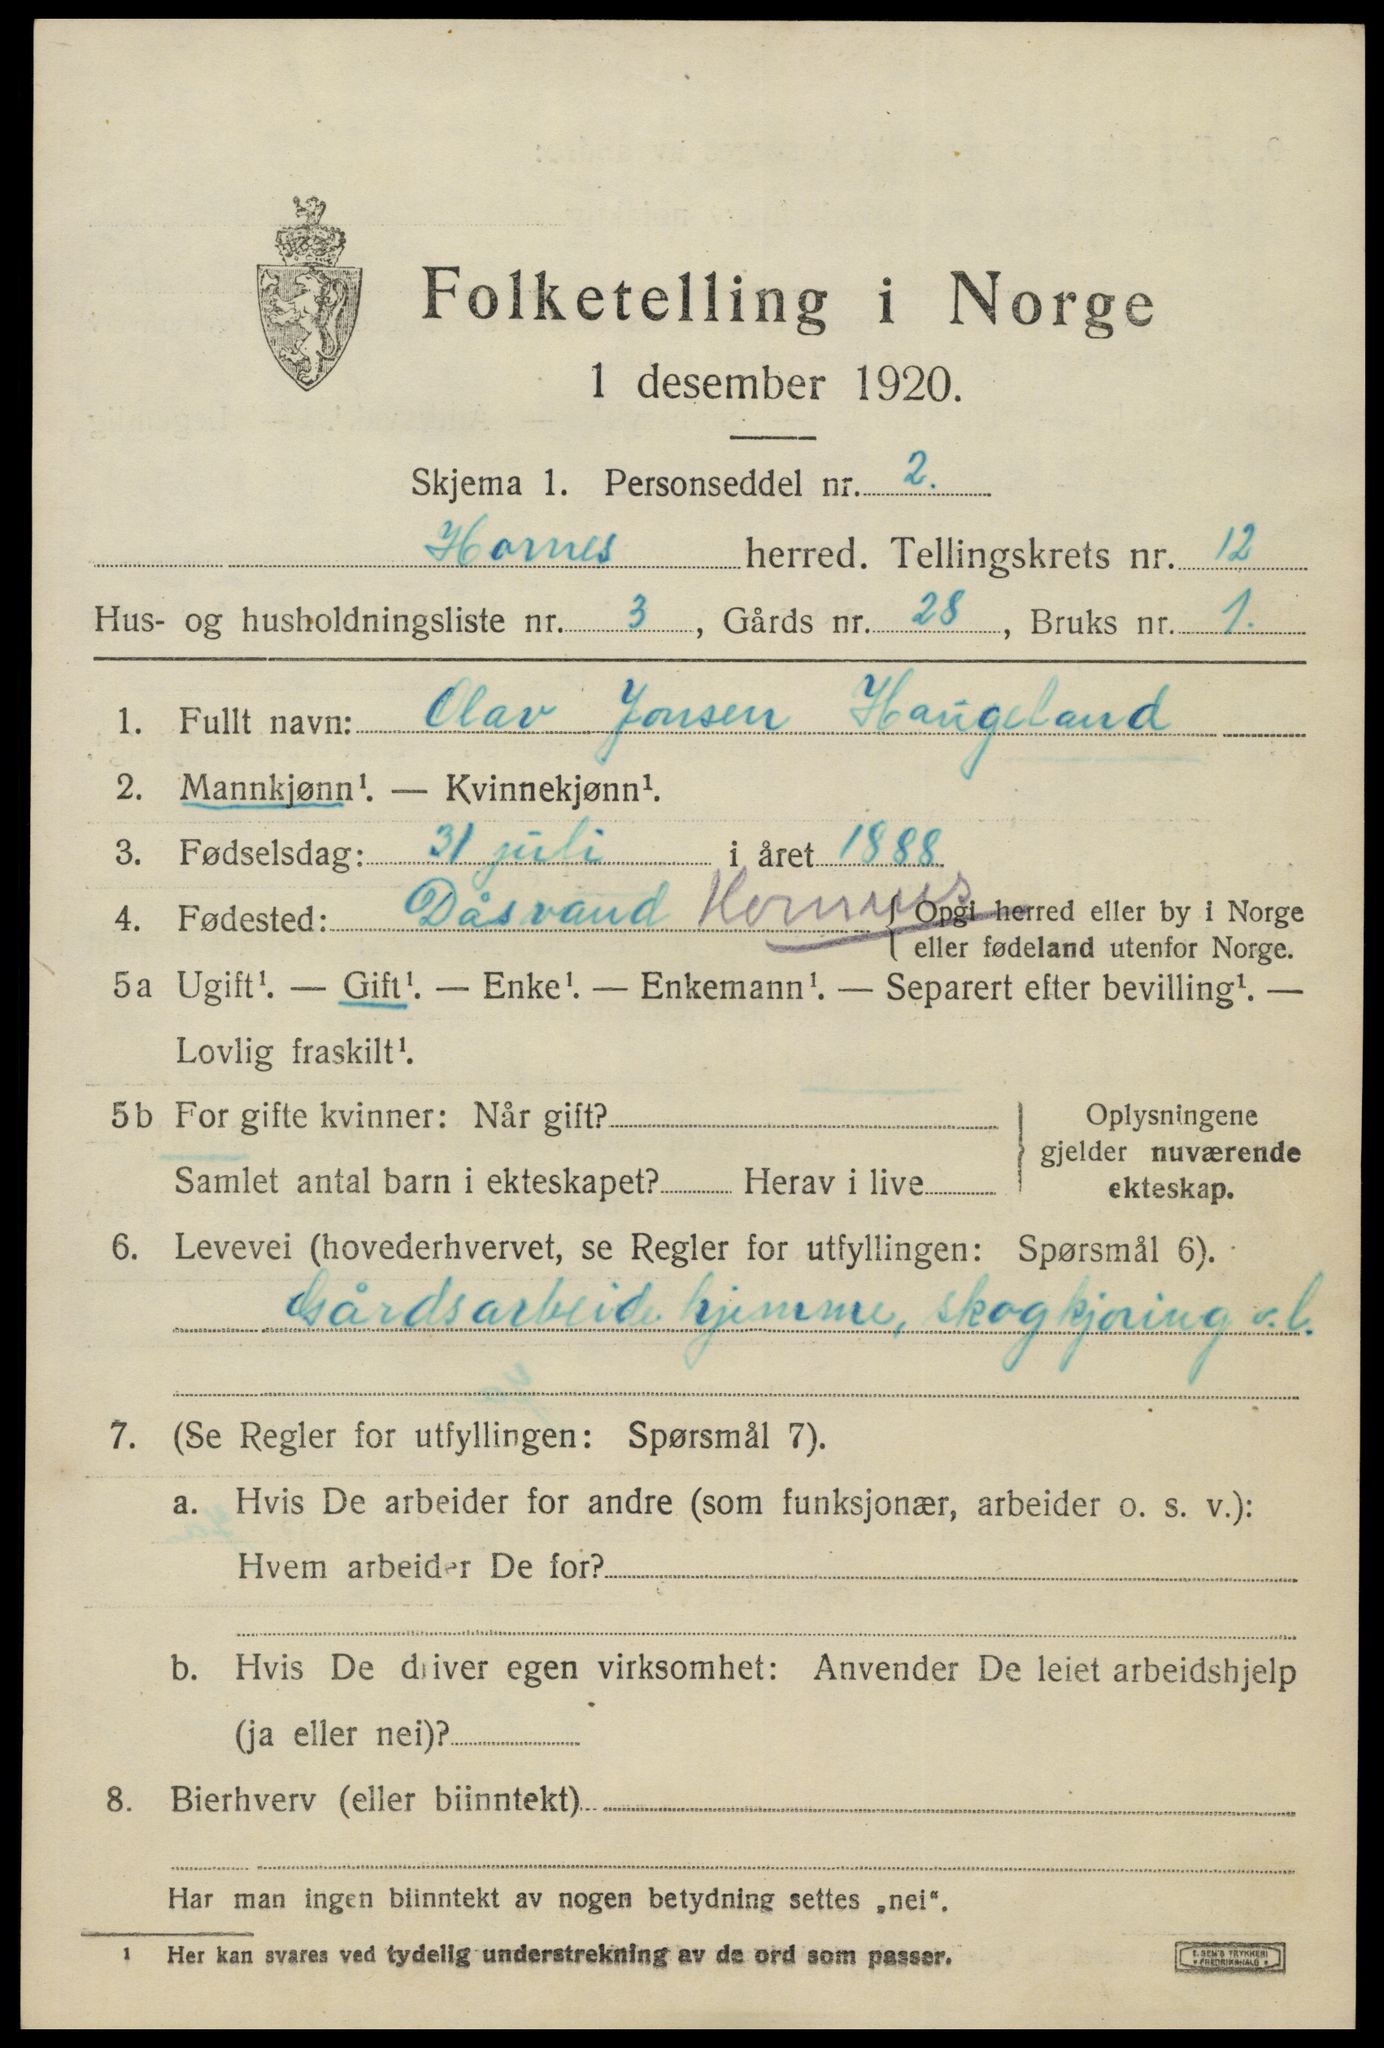 Folketelling i Norge
1 desember 1920.
Skjema 1. Personseddel nr. 2.
Hornes herred. Tellingskrets nr. 12
Hus- og husholdningsliste nr. 3, Gårds nr. 28, Bruks nr. 1.
1. Fullt navn: Olav Jonsen Haugeland
2. Mannkjønn¹. — Kvinnekjønn¹.
3. Fødselsdag: 31 juli i året 1888
4. Fødested: Dåsvand Hornnes { Opgi herred eller by i Norge
eller fødeland utenfor Norge.
5a Ugift¹. — Gift¹. — Enke¹. — Enkemann¹. — Separert efter bevilling¹. —
Lovlig fraskilt¹.
5b For gifte kvinner: Når gift?
Samlet antal barn i ekteskapet? Herav i live
Oplysningene
gjelder nuværende
ekteskap.
6. Levevei (hovederhvervet, se Regler for utfyllingen: Spørsmål 6).
Gårdsarbeide hjemme, skogkjøring o.l.
7. (Se Regler for utfyllingen: Spørsmål 7).
a. Hvis De arbeider for andre (som funksjonær, arbeider o. s. v.):
Hvem arbeider De for?
b. Hvis De driver egen virksomhet: Anvender De leiet arbeidshjelp
(ja eller nei)?
8. Bierhverv (eller biinntekt)
Har man ingen biinntekt av nogen betydning settes „nei“.
¹ Her kan svares ved tydelig understrekning av de ord som passer.
E. SEM'S TRYKKERI
FREDRIKSHALD